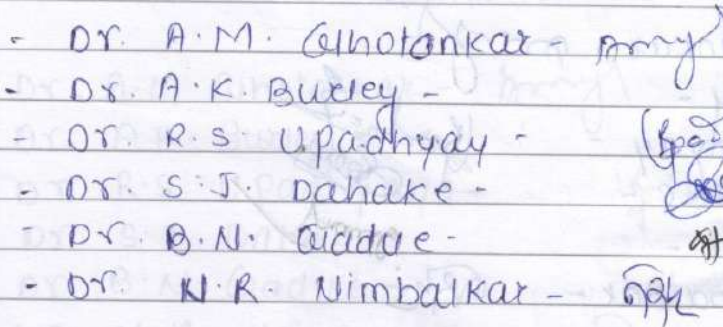 - Dr. A.M. Ghotankar -
- Dr. A.K. Burley -
- Dr. R.S. Upadhyay -
- Dr. S.J. Dahake -
- Dr. B.N. -
- Dr. N.R Nimbalkar -